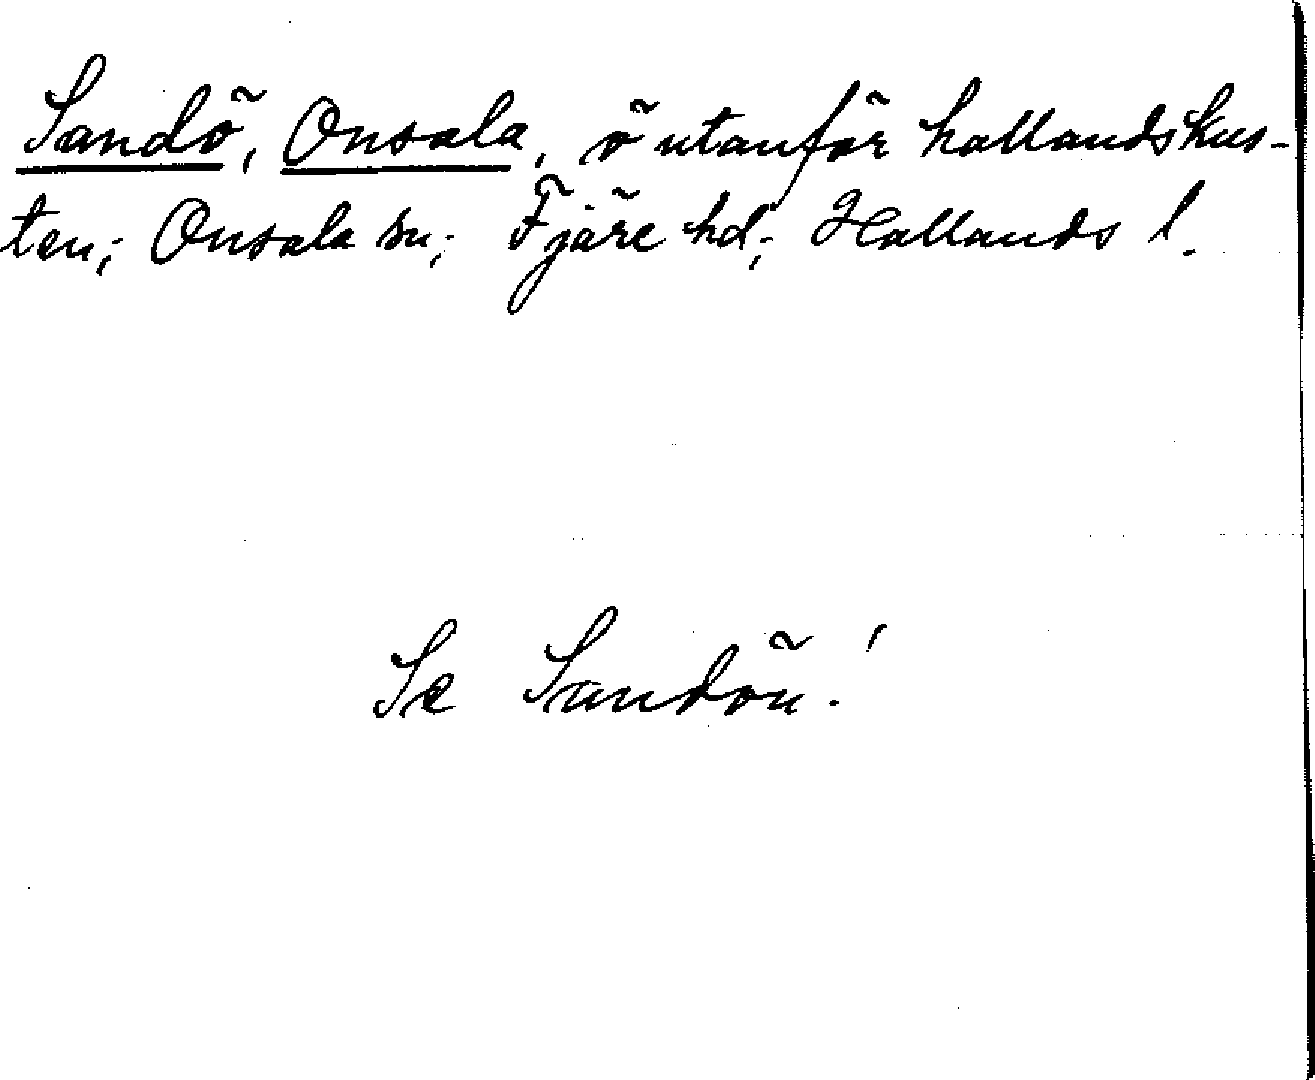 Sandö, Onsala, ö utanför hallandskus-
ten; Onsala sn; Fjäre hd; Hallands l.
Se Sandön!